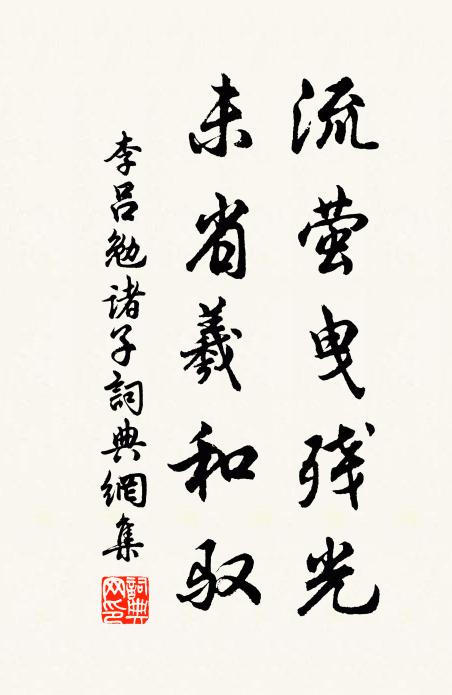 流萤曳残光
未省羲和驭
李吕勉诸子詞典網集
詞典网印